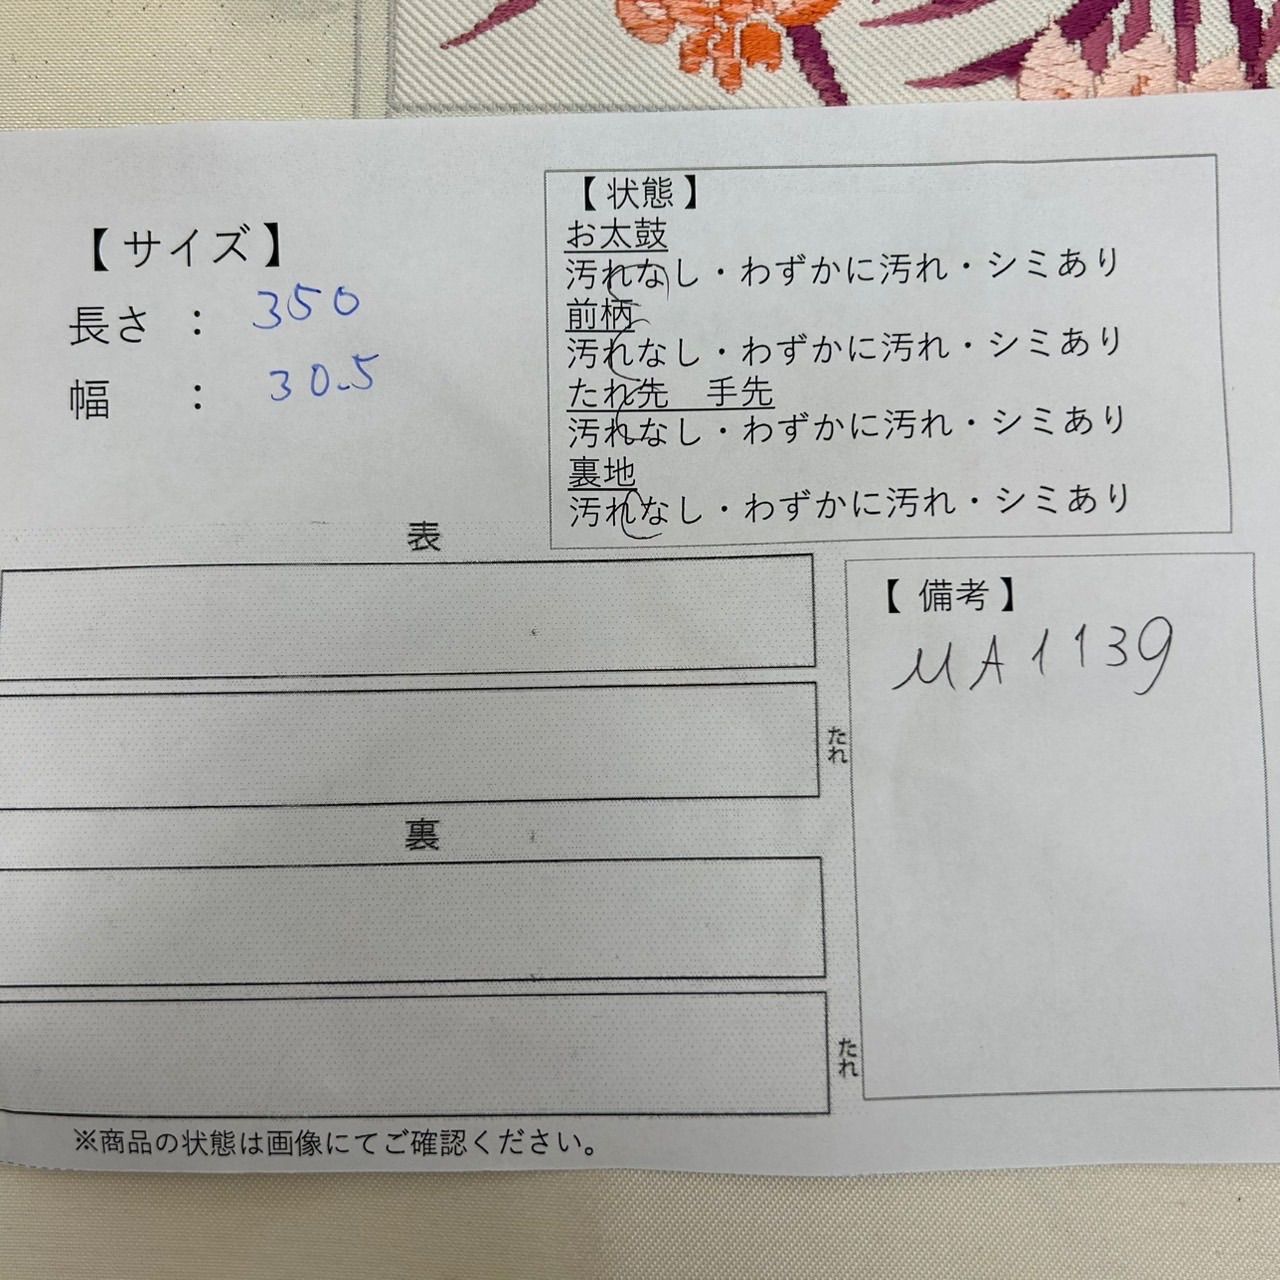 【 サイズ 】
長さ ： 350
幅 ： 30.5
【 状態 】
お太鼓
汚れなし・わずかに汚れ・シミあり
前柄
汚れなし・わずかに汚れ・シミあり
たれ先　手先
汚れなし・わずかに汚れ・シミあり
裏地
汚れなし・わずかに汚れ・シミあり
表
たれ
裏
たれ
【 備考 】
MA1139
※商品の状態は画像にてご確認ください。